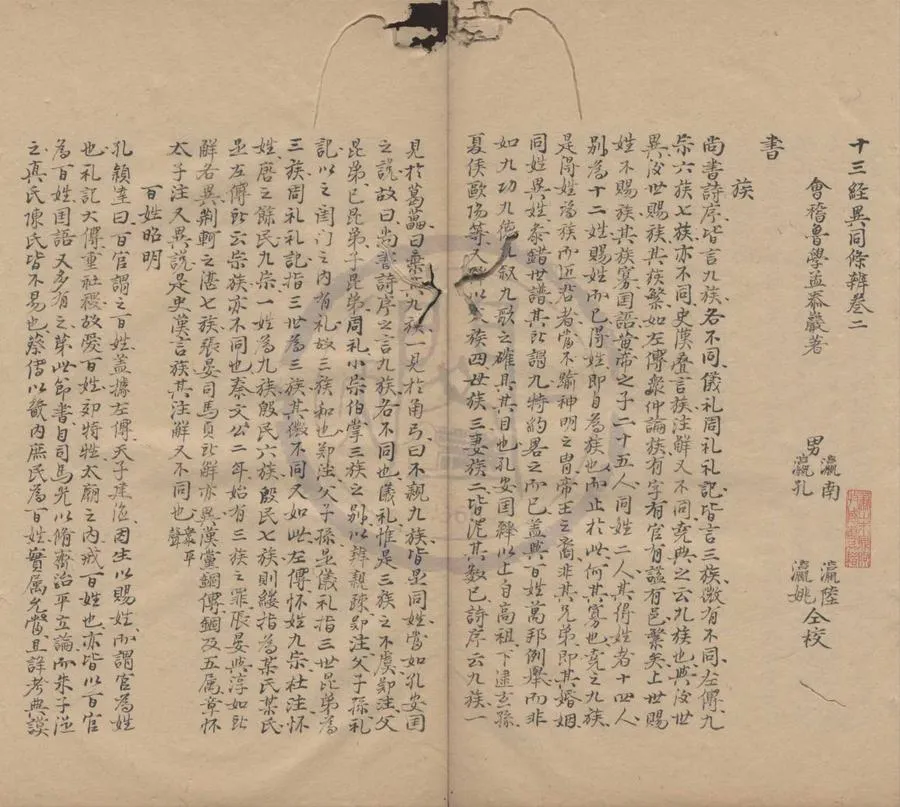 十三經異同條辨叁二
會稽魯學孟忝嚴著
男瀛南 瀛陸
瀛孔 瀛姚 仝校
書
族
尚書詩序皆言九族各不同儀礼周礼礼記皆言三族微有不同左傳九
宗六族七族亦不同史漢叠言族注解又不同堯典之云九族也與後世
異後世賜族其族繁如左傳衆仲論族有字有官有謚有邑繁矣上世賜
姓不賜族其族寡国語黃帝之子二十五人同姓二人其得姓者十四人
別為十二姓賜姓而已得姓即自為族也而止於此何其寡也堯之九族
是得姓為族而近君者當不踰神明之冑帝王之裔非其兄弟即其婚姻
同姓異姓叅錯世譜其所謂九特約畧之而已盖與百姓萬邦例舉而非
如九功九德九叙九歌之確具其目也孔安国釋以上自高祖下逮玄孫
夏侯歐陽等又釋以父族四母族三妻族二皆泥其数已詩序云九族一
見於葛藟曰棄其九族一見於角弓曰不親九族皆是同姓當如孔安国
之說故曰尚書詩序之言九族各不同也儀礼惟是三族之不虞鄭注父
昆弟已昆弟子昆弟周礼小宗伯掌三族之別以辨親疎鄭注父子孫礼
記以之闺门之内有礼故三族和也鄭注父子孫並儀礼指三世昆弟為
三族周礼礼記指三世為三族其微不同又如此左傳怀姓九宗杜注怀
姓唐之餘民九宗一姓為九族殷民六族殷民七族則縷指為某氏某氏
並左傳所云宗族亦不同也秦文公二年始有三族之罪張晏與淳如所
解各異荆軻之湛七族張晏司馬貞所解亦異漢黨錮傳錮及五属章怀
太子注又異說是史漢言族其注解又不同也 衆平聲
百姓昭明
孔穎達曰百官謂之百姓盖據左傳天子建德因生以賜姓而謂官為姓
也礼記大傳重社稷故愛百姓郊特牲太廟之内戒百姓也亦皆以百官
為百姓国語又多有之苐此節書自司馬光以脩齊治平立論而朱子從
之真氏陳氏皆不易也蔡傳以畿内庶民為百姓實属允當且詳考典謨